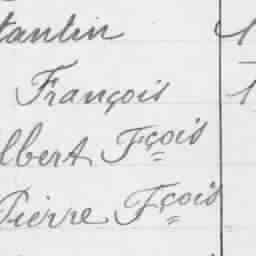 tantin
François
lbert Fçois
Pierre Fçois